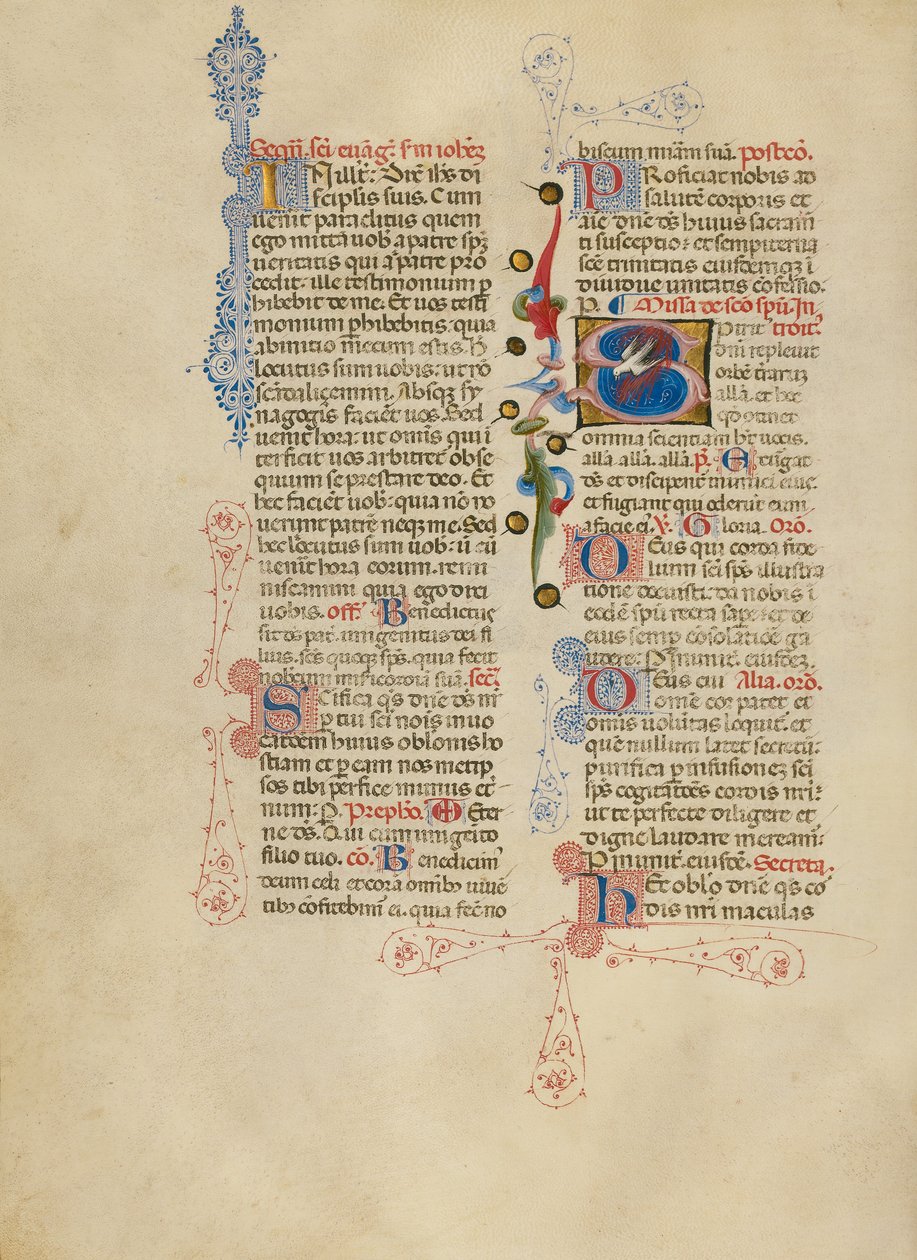 Sequē. sc̄i. euāg̅. s̄m ioh̄ez
IN illt̄: Dix̄ ih̄s di
scipulis suis. Cum
uenit paraclitus quem
ego mittā uob̄ a patre spm̄
ueritatis qui a p̄atre pro
cedit: ille testimonium p
hibebit de me. Et uos testi
monium p̱hibebitis: quia
ab initio mecum estis. H̄
locutus sum uobis: ut nō
scādaliçemini. Absqz sy
nagogis faciēt uos. Sed
uenit hora: ut omnis qui ī
terficit uos arbitret̄ obse
quium se prestare deo. Et
hec faciēt uob̄: quia nō no
uerunt patrē neqz me. Sed
hec locutus sum uob̄: ut cū
uenīt hora eorum. remi
niscamini quia ego dixi
uobis. off̄. Benedictus
sit ds̄ pat̄. unigenitus dei fi
lius. sc̄s quoqz sps̄. quia fecit
nobcum misericordiā suā. sec̄.
SCifica q̄s dn̄e ds̄ nr̄
p̱ tui sci nōis inuo
catōem huius oblōnis ho
stiam et p̱ eam nos metip
sos tibi perfice munus et̄
num: P. Prephō. Eter
ne ds̄. Qui cum unigēito
filio tuo. cō. Benedicim̄
deum celi et corā omib̄ uiuē
tib̄ cōfitebim̄ ei. quia fec̄ no
biscum miām suā. postcō.
PRoficiat nobis ad
salutē corporis et
aīe dn̄e ds̄ huius sacram̄
ti susceptio: et sempiterna
scē trinitatis eiusdemqz ī
diuidue unitatis cōfessio.
P. Missa de sc̄o spū. In
Spirit̄ troit̄.
dn̄i repleuit
orbē t̄rarum
all̄a. et hoc
qd̄ ↄtinet
omnia scientiam h̄t uocis.
all̄a. all̄a. all̄a. p̄. Exurgat
ds̄ et discipent̄ inimici eius.
et fugiant qui oderūt eum
a facie ei. V. Gloria. Orō.
DEus qui corda fide
lium sc̄i sps̄ illustra
tione docuisti: da nobis ī
eodē spū recta sap̱e: et de
eius semp̱ cōsolatiōe ga
udere: P̱ in unit̄. eiusdez.
DEus cui Alia. orō.
omne cor patet et
omis uolūtas loquit̄. et
quē nullum latet secretū:
purifica p̱ infusionez sc̄i
sps̄ cogitatōes cordis nr̄i:
ut te perfecte diligere et
digne laudare mereām̄.
P̱ in unit̄. eiusdē. Secreta.
HEc oblō dn̄e q̄s cō
dis nr̄i maculas